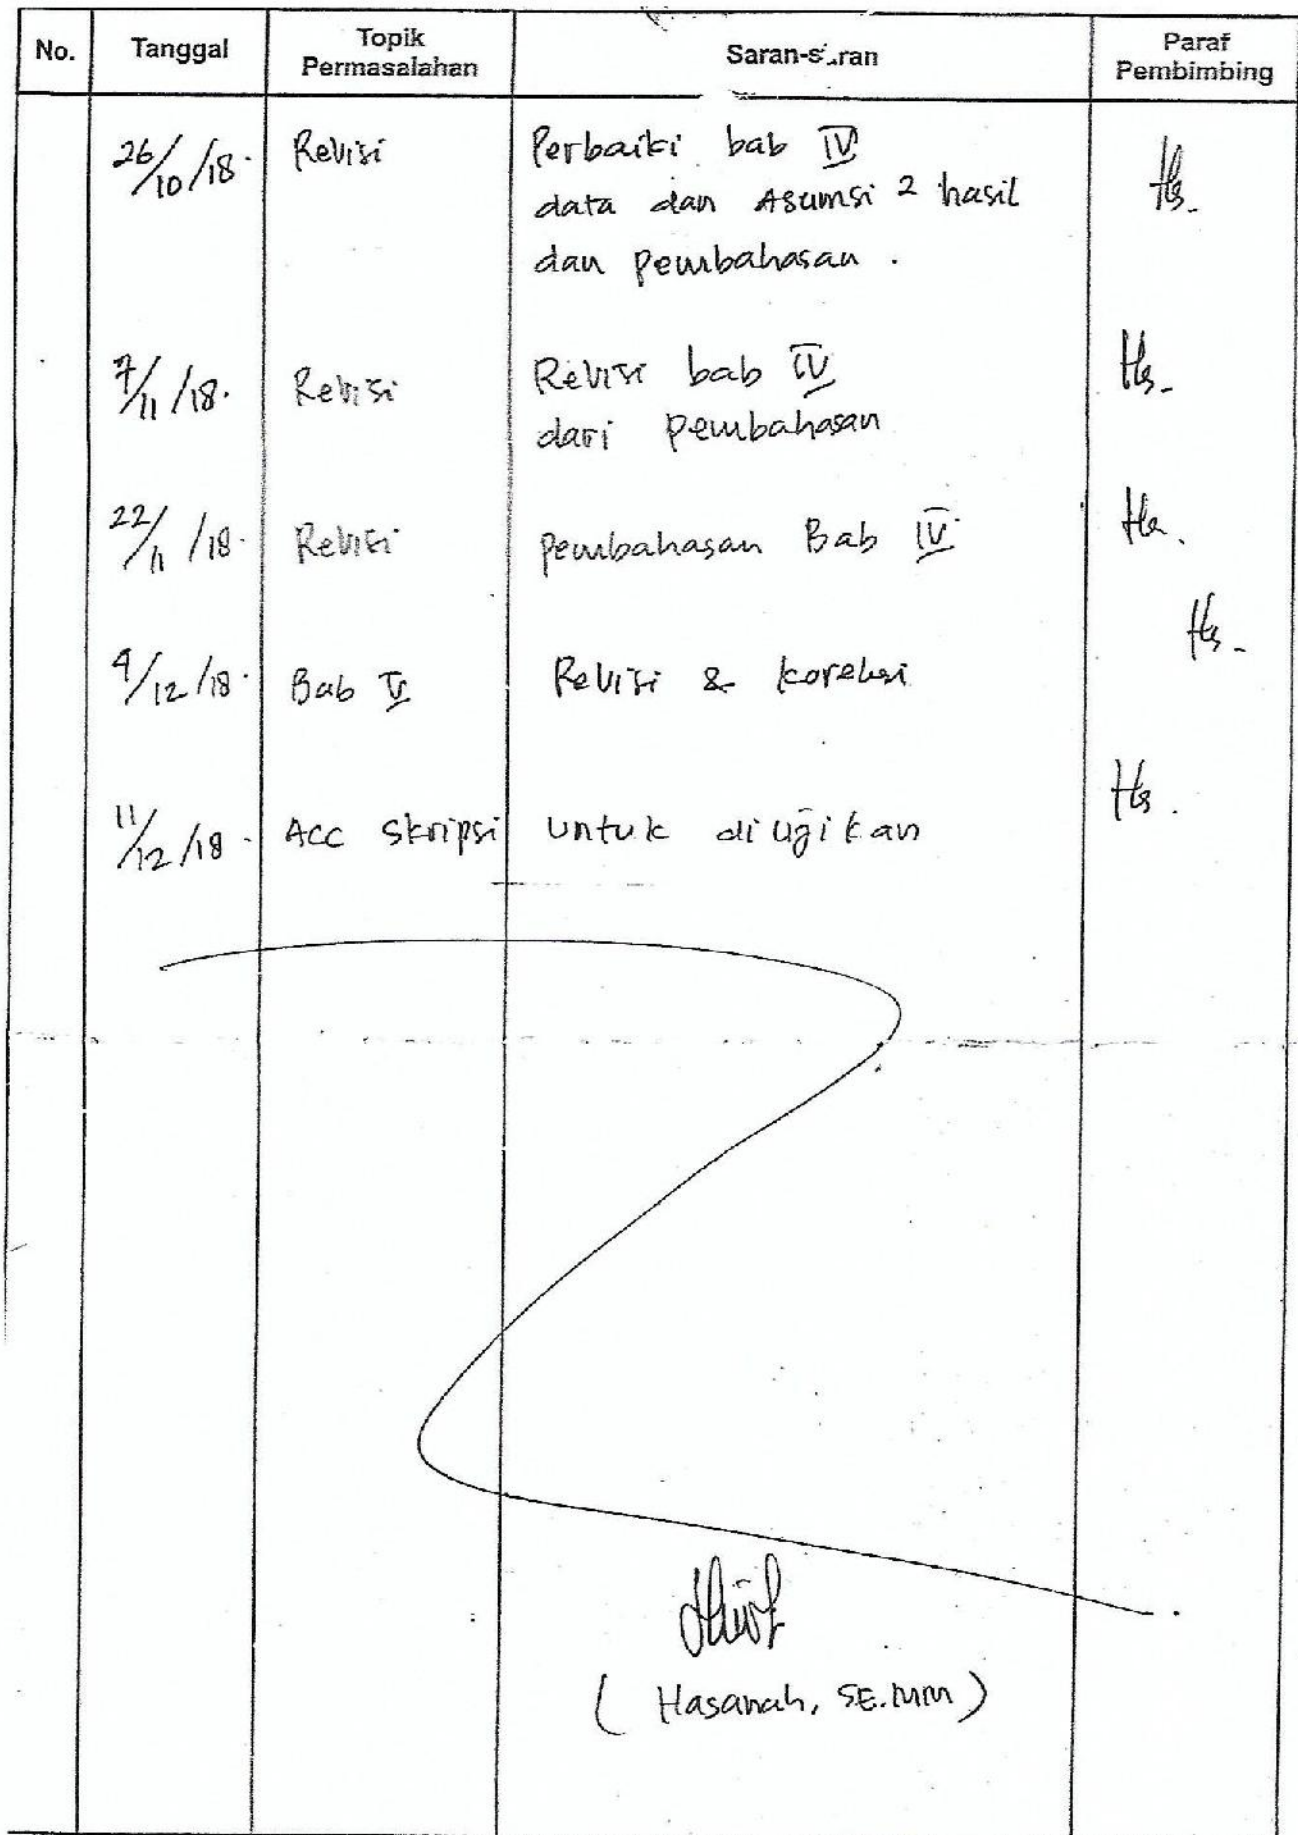 No. Tanggal Topik Permasalahan Saran-saran Paraf Pembimbing
26/10/18. Revisi Perbaiki bab IV
data dan Asumsi 2 hasil
dan pembahasan.
7/11/18. Revisi Revisi bab IV
dari pembahasan
22/11/18. Revisi pembahasan Bab IV
/12/18. Bab V Revisi & koreksi
11/12/18. Acc skripsi untuk diujikan
( Hasanah, SE.MM )